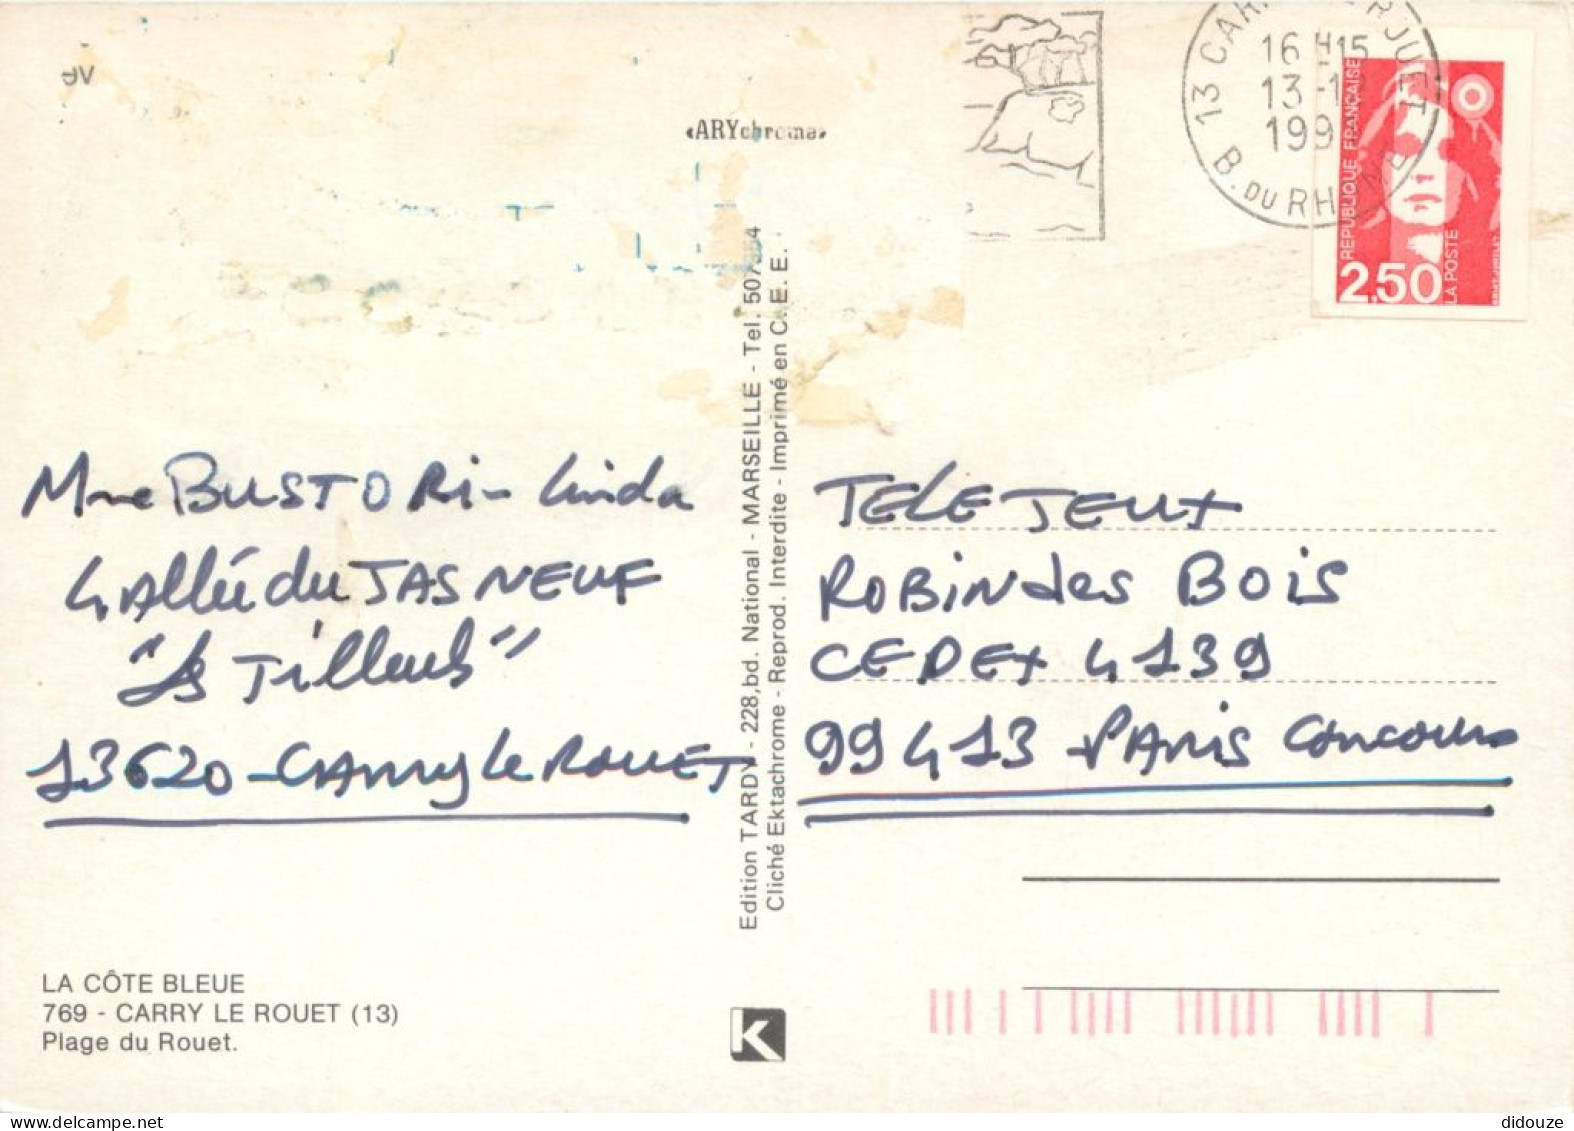 «ARYchrome»
16 H 15
13 -1
199
13 CAR
B. DU RHÔNE
RÉPUBLIQUE FRANÇAISE
LA POSTE
2,50
Mme BUSTORi - Linda
4 Allée du JAS NEUF
"Les Tilleuls"
13620 - CARRY Le ROUET
Edition TARDY - 228,bd. National - MARSEILLE - Tel.
Cliché Ektachrome - Reprod. Interdite - Imprimé en C.E.E.
TELE JEUX
ROBIN des BOIS
CEDEX 4139
99413 PARIS Concours
LA CÔTE BLEUE
769 - CARRY LE ROUET (13)
Plage du Rouet.
K
didouze